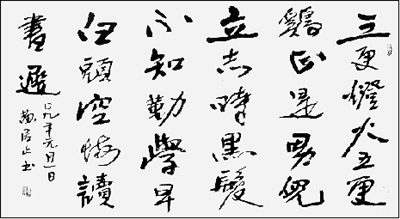 三更燈火五更
鷄正是男兒
立志時黑髮
不知勤學早
白頭空悔讀
書遲
九年元月一日
書